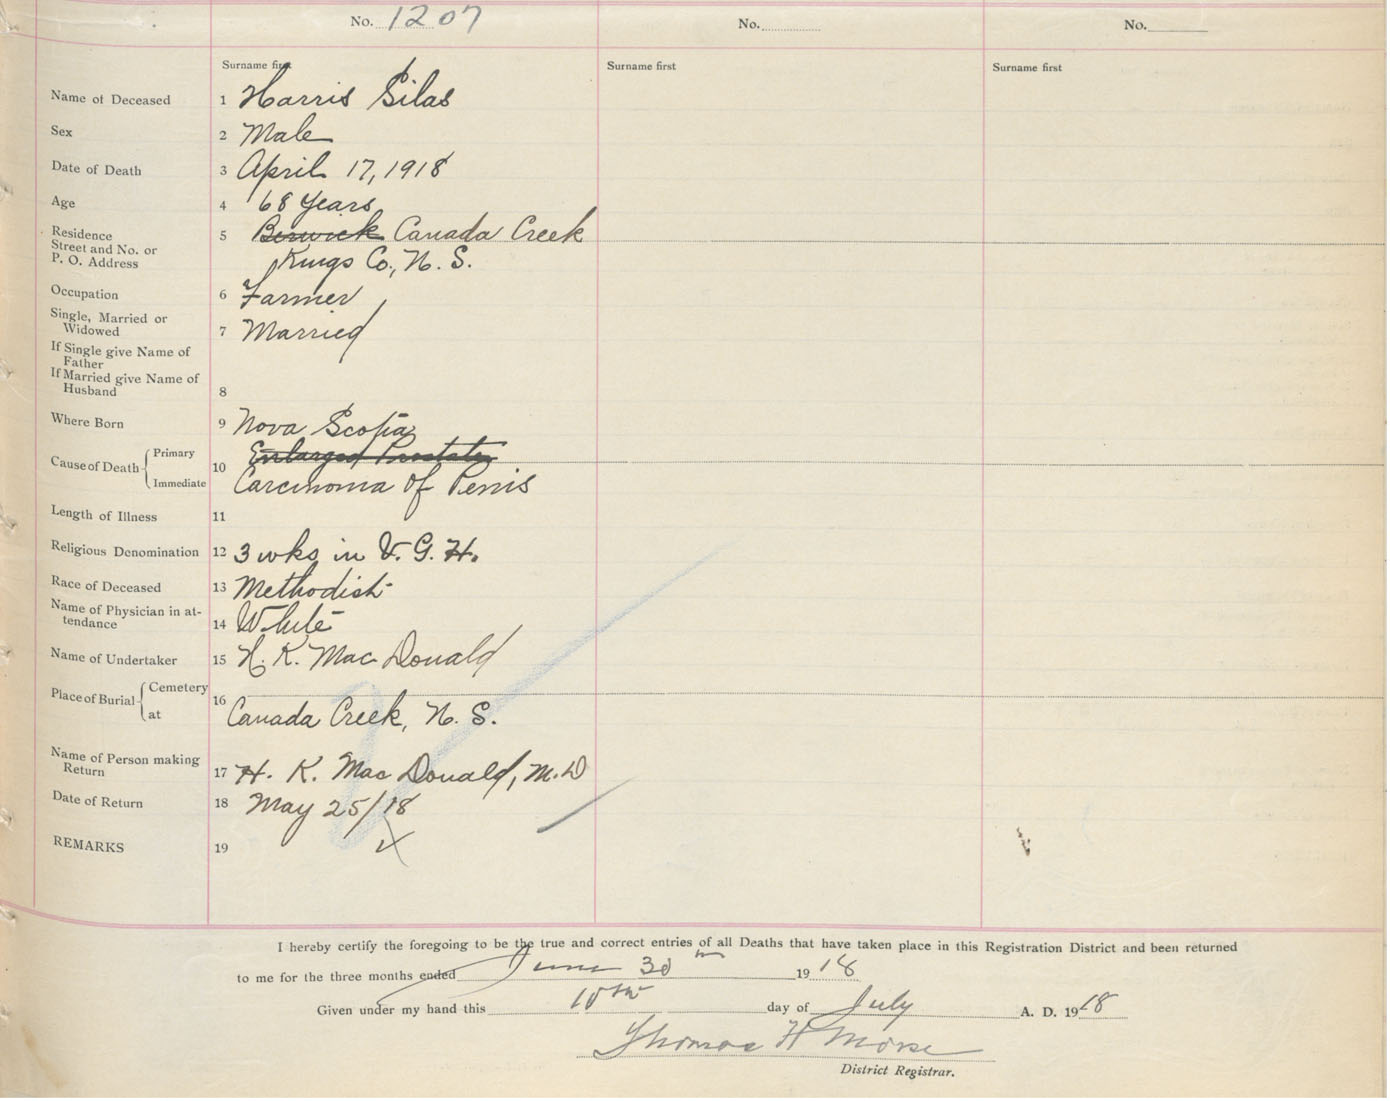 No. 1207 No. No.
Surname first Surname first Surname first
Name of Deceased 1 Harris Silas
Sex 2 Male
Date of Death 3 April 17, 1918
Age 4 68 years
Residence 5 Berwick Canada Creek
Street and No. or
P. O. Address Kings Co., N. S.
Occupation 6 Farmer
Single, Married or
Widowed 7 Married
If Single give Name of
Father
If Married give Name of
Husband 8
Where Born 9 Nova Scotia
Cause of Death Primary 10 Enlarged Prostate
Immediate Carcinoma of Penis
Length of Illness 11
Religious Denomination 12 3 wks in V. G. H.
Race of Deceased 13 Methodist
Name of Physician in at-
tendance 14 White
Name of Undertaker 15 H. K. MacDonald
Place of Burial Cemetery 16
at Canada Creek, N. S.
Name of Person making
Return 17 H. K. MacDonald, M.D
Date of Return 18 May 25/18
REMARKS 19
I hereby certify the foregoing to be the true and correct entries of all Deaths that have taken place in this Registration District and been returned
to me for the three months ended June 30th 1918
Given under my hand this 10th day of July A. D. 1918
Thomas H Morse
District Registrar.